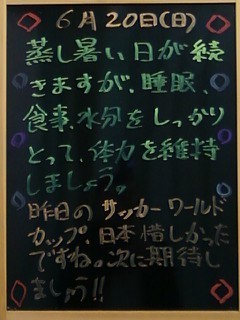 6月20日(日)
蒸し暑い日が続
きますが、睡眠、
食事、水分をしっかり
とって、体力を維持
しましょう。
昨日のサッカーワールド
カップ、日本惜しかった
ですね。次に期待し
ましょう!!